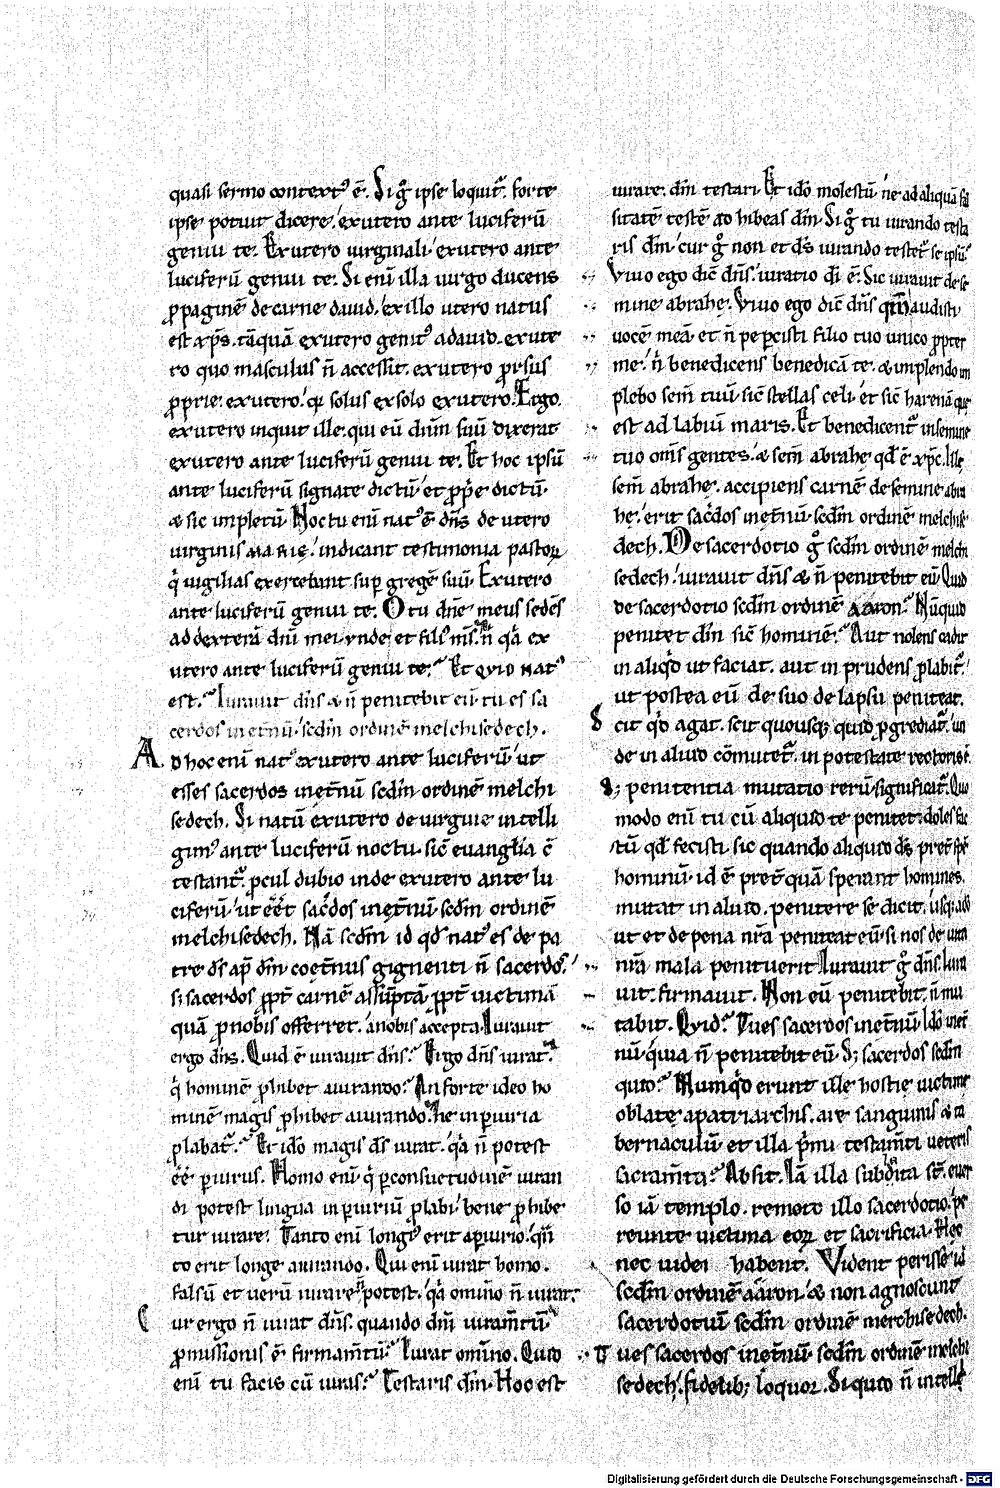 quasi sermo context᷒ ē. Si g̊ ipse loquit᷑. forte
ipse potuit dicere. exutero ante luciferū
genui te. Exutero uirginali. exutero ante
luciferū genui te. Si enī illa uirgo ducens
ꝓpaginē de carne dauid. exillo utero natus
est xp̄s. tāquā exutero genit᷒ adauid. exute
ro quo masculus ñ accessit. exutero ꝓrsus
ꝓprie. exutero. q̇ solus exsolo exutero. Ergo
exutero inquit ille. qui eū dn̄m suū dixerat
exutero ante luciferū genui te. Et hoc ipsū
ante luciferū signate dictū. et ꝓp̄e dictū.
& sic impletū. Noctu enī nat᷒ ē dn̄s de utero
uirginis MARIE. indicant testimonia pastoꝝ
q̇ uigilias exercebant sup̱ gregē suū. Exutero
ante luciferū genui te. O tu dn̄e meus sedēs
ad dexterā dn̄i mei. unde et fili᷒ m̄s. ñ q̇a ex
utero ante luciferū genui te. Et QVID nat᷒
est. Iurauit dn̄s & ñ penitebit eū. tu es sa
cerdos inet̄nū. scd̄m ordinē melchisedech.
AD hoc enī nat᷒ exutero ante luciferū. ut
esses sacerdos inet̄nū scd̄m ordinē melchi
sedech. Si natū exutero de uirgine intelli
gim᷒ ante luciferū noctu. sic̄ euanglīa ē
testant᷑. ꝓcul dubio inde exutero ante lu
ciferū. ut ēēt sac̄dos inet̄nū. scd̄m ordinē
melchisedech. Nā scd̄m id qd̄ nat᷒ es de pa
tre ds̄ ap̄ dm̄. coet̄nus gignenti ñ sacerdos.
s; sacerdos ꝓpt̄ carnē assūptā. ꝓpt̄ uictimā
quā ꝓnobis offerret. anobis accepta. Iurauit
ergo dn̄s. Quid ē iurauit dn̄s. Ergo dn̄s iurat.
q̇ hominē ꝓhibet aiurando. An forte ideo ho
minē magis ꝓhibet aiurando. ne in ꝑiuria
ꝓlabat᷑. Et idō magis ds̄ iurat. q̇a ñ potest
ēē ꝑiurus. Homo enī q̇ ꝑconsuetudinē iuran
di potest lingua in ꝑiuriū ꝓlabi. bene ꝓhibe
tur iurare. Tanto enī longi᷒ erit aꝑiurio. q̄n
to erit longe aiurando. Qui enī iurat homo.
falsū et uerū iurare potest. q̇a omīno ñ iurat.
ur ergo ñ iurat dn̄s. quando dn̄i iuram̄tū
ꝓmissionis ē firmam̄tū. Iurat omīno. Quid
enī tu facis cū iuras. Testaris dm̄. Hoc est
iurare. dm̄ testari. Et idō molestū. ne ad aliquā fal
sitatē testē adhibeas dm̄. Si g̊ tu iurando testa
ris dm̄. cur g̊ non et ds̄ iurando testet᷑ se ipsū.
Viuo ego dic̄ dn̄s. iuratio dī ē. Sic iurauit de se
mine abrahe. Viuo ego dic̄ dn̄s qm̄ audisti
uocē meā. et ñ peꝑcisti filio tuo unico ꝓpter
me. ñ benedicens benedicā te. & implendo im
plebo sem̄ tuū. sic̄ stellas celi. et sic̄ harenā que
est ad labiū maris. Et benedicent᷑ in semine
tuo om̄s gentes. & sem̄ abrahe qd̄ ē xp̄c. Ille
sem̄ abrahe. accipiens carnē de semine abra
he. erit sac̄dos inet̄nū. scd̄m ordinē melchise
dech. De sacerdotio g̊ scd̄m ordinē melchi
sedech. iurauit dn̄s & ñ penitebit eū. Quid
de sacerdotio scd̄m ordinē aaron. Nūquid
penitet dm̄ sic̄ hominē. Aut nolens cadit
in aliqd̄ ut faciat. aut inprudens ꝓlabit᷑.
ut postea eū de suo de lapsu peniteat.
Scit qd̄ agat. scit quousq; quid ꝓgrediat᷑. un
de in aliud cōmutet᷑. in potestate rectoris ē.
S; penitentia mutatio rerū significat᷑. Quo
modo enī tu cū aliquid te penitet. doles fac
tū qd̄ fecisti. sic quando aliquid ds̄ pret̄ spē
hominū. id ē pret̄ quā sperant homines.
mutat in aliud. penitere se dicit. usq; adeo
ut et de pena nr̄a peniteat eū. si nos de uita
nr̄a mala penituerit. Iurauit g̊ dn̄s. Iura
uit. firmauit. Non eū penitebit. ñ mu
tabit. Quid. Tu es sacerdos inet̄nū. Idō inet̄
nū. quia ñ penitebit eū. S; sacerdos scd̄m
quid. Numqd̄ erunt ille hostie uictime
oblate apatriarchis. are sanguinis & ta
bernaculū et illa p̄mi testam̄ti ueteris
sacram̄ta. Absit. Iā illa subdita s̄t. euer
so iā templo. remoto illo sacerdotio. pe
reunte uictima eoꝝ et sacrificia. Hec
nec iudei habent. Vident perisse id
scd̄m ordinē aaron. & non agnoscunt
sacerdotiū scd̄m ordinē melchisedech.
Tu es sacerdos inet̄nū. scd̄m ordinē melchi
sedech. fidelib; loquor. Si quid ñ intelle
Digitalisierung gefördert durch die Deutsche Forschungsgemeinschaft - DFG